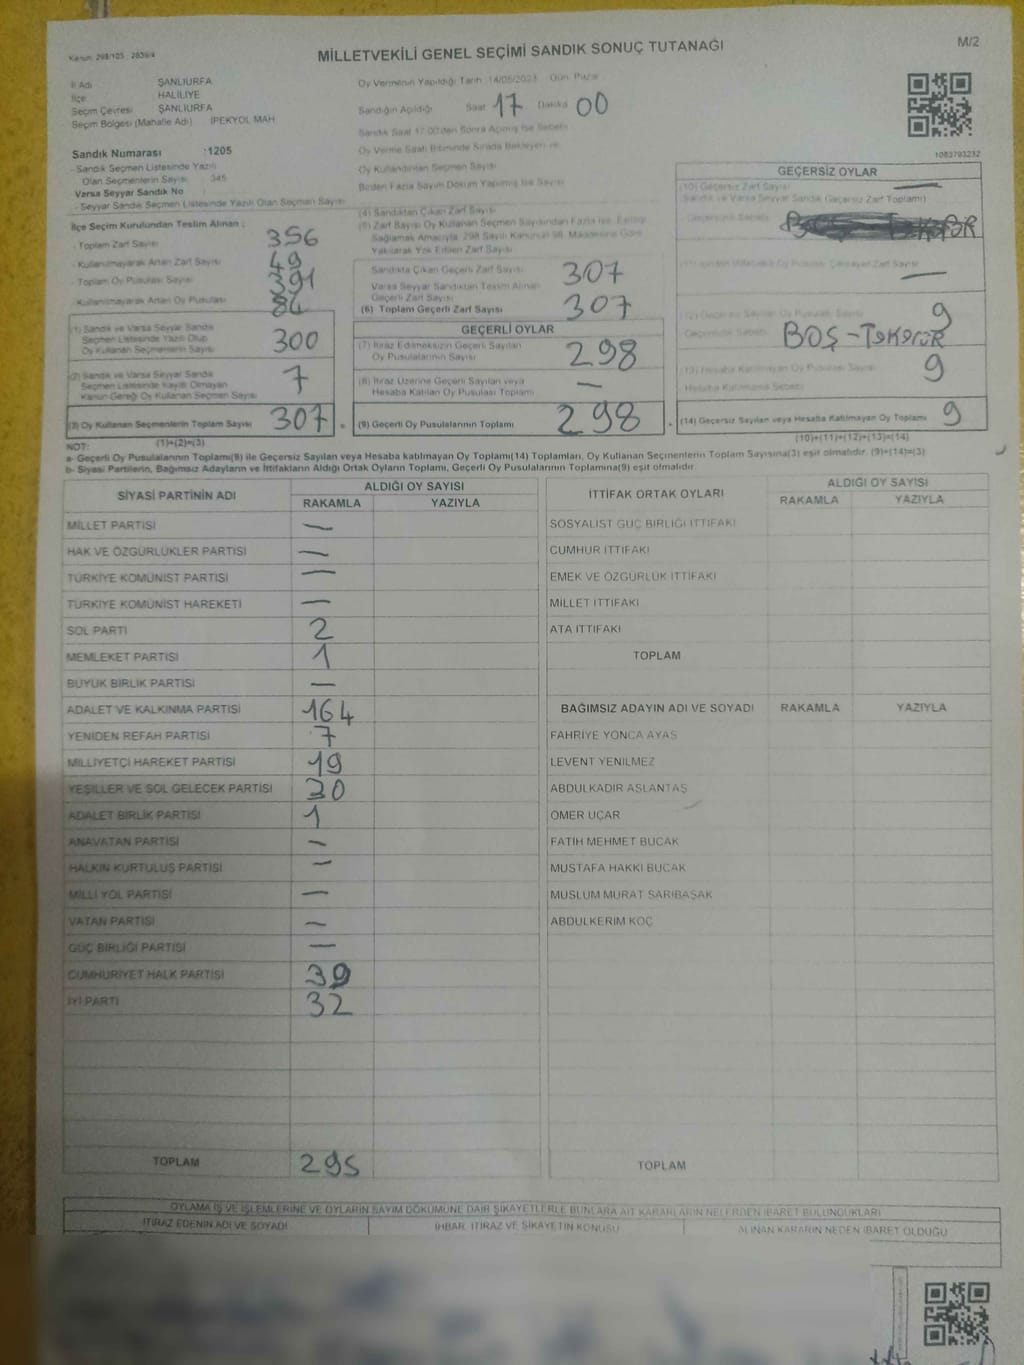 Kanun: 298/105 2839/4
MİLLETVEKİLİ GENEL SEÇİMİ SANDIK SONUÇ TUTANAĞI
M/2
İl Adı ŞANLIURFA
İlçe HALİLİYE
Seçim Çevresi ŞANLIURFA
Seçim Bölgesi (Mahalle Adı) İPEKYOL MAH
Sandık Numarası :1205
- Sandık Seçmen Listesinde Yazılı
Olan Seçmenlerin Sayısı : 345
Varsa Seyyar Sandık No
- Seyyar Sandık Seçmen Listesinde Yazılı Olan Seçmen Sayısı
İlçe Seçim Kurulundan Teslim Alınan :
- Toplam Zarf Sayısı 356
- Kullanılmayarak Artan Zarf Sayısı 49
- Toplam Oy Pusulası Sayısı 391
- Kullanılmayarak Artan Oy Pusulası 84
(1) Sandık ve Varsa Seyyar Sandık
Seçmen Listesinde Yazılı Olup
Oy Kullanan Seçmenlerin Sayısı 300
(2) Sandık ve Varsa Seyyar Sandık
Seçmen Listesinde Kayıtlı Olmayan
Kanun Gereği Oy Kullanan Seçmen Sayısı 7
(3) Oy Kullanan Seçmenlerin Toplam Sayısı 307
(1)+(2)=(3)
Oy Vermenin Yapıldığı Tarih :14/05/2023 Gün: Pazar
Sandığın Açıldığı Saat 17 Dakika 00
Sandık Saat 17.00'den Sonra Açılmış İse Sebebi
Oy Verme Saati Bitiminde Sırada Bekleyen ve
Oy Kullandırılan Seçmen Sayısı
Birden Fazla Sayım Döküm Yapılmış İse Sayısı
(4) Sandıktan Çıkan Zarf Sayısı
(5) Zarf Sayısı Oy Kullanan Seçmen Sayısından Fazla İse, Eşitliği
Sağlamak Amacıyla, 298 Sayılı Kanunun 98. Maddesine Göre
Yakılarak Yok Edilen Zarf Sayısı
Sandıkta Çıkan Geçerli Zarf Sayısı 307
Varsa Seyyar Sandıktan Teslim Alınan
Geçerli Zarf Sayısı
(6) Toplam Geçerli Zarf Sayısı 307
GEÇERLİ OYLAR
(7) İtiraz Edilmeksizin Geçerli Sayılan
Oy Pusulalarının Sayısı 298
(8) İtiraz Üzerine Geçerli Sayılan veya
Hesaba Katılan Oy Pusulası Toplamı —
(9) Geçerli Oy Pusulalarının Toplamı 298
1083793232
GEÇERSİZ OYLAR
(10) Geçersiz Zarf Sayısı —
(Sandık ve Varsa Seyyar Sandık Geçersiz Zarf Toplamı)
Zarf Sayısı —
9
BOŞ-TEKERÜR
(13) Hesaba Katılmayan Oy Pusulası Sayısı 9
Hesaba Katılmama Sebebi
(14) Geçersiz Sayılan veya Hesaba Katılmayan Oy Toplamı 9
(10)+(11)+(12)+(13)=(14)
NOT:
a- Geçerli Oy Pusulalarının Toplamı(9) ile Geçersiz Sayılan veya Hesaba katılmayan Oy Toplamı(14) Toplamları, Oy Kullanan Seçmenlerin Toplam Sayısına(3) eşit olmalıdır. (9)+(14)=(3)
b- Siyasi Partilerin, Bağımsız Adayların ve İttifakların Aldığı Ortak Oyların Toplamı, Geçerli Oy Pusulalarının Toplamına(9) eşit olmalıdır
SİYASİ PARTİNİN ADI ALDIĞI OY SAYISI
RAKAMLA YAZIYLA
MİLLET PARTİSİ —
HAK VE ÖZGÜRLÜKLER PARTİSİ —
TÜRKİYE KOMÜNİST PARTİSİ —
TÜRKİYE KOMÜNİST HAREKETİ —
SOL PARTİ 2
MEMLEKET PARTİSİ 1
BÜYÜK BİRLİK PARTİSİ —
ADALET VE KALKINMA PARTİSİ 164
YENİDEN REFAH PARTİSİ 7
MİLLİYETÇİ HAREKET PARTİSİ 19
YEŞİLLER VE SOL GELECEK PARTİSİ 30
ADALET BİRLİK PARTİSİ 1
ANAVATAN PARTİSİ —
HALKIN KURTULUŞ PARTİSİ —
MİLLİ YOL PARTİSİ —
VATAN PARTİSİ —
GÜÇ BİRLİĞİ PARTİSİ —
CUMHURİYET HALK PARTİSİ 39
İYİ PARTİ 32
TOPLAM 295
İTTİFAK ORTAK OYLARI ALDIĞI OY SAYISI
RAKAMLA YAZIYLA
SOSYALİST GÜÇ BİRLİĞİ İTTİFAKI
CUMHUR İTTİFAKI
EMEK VE ÖZGÜRLÜK İTTİFAKI
MİLLET İTTİFAKI
ATA İTTİFAKI
TOPLAM
BAĞIMSIZ ADAYIN ADI VE SOYADI RAKAMLA YAZIYLA
FAHRİYE YONCA AYAS
LEVENT YENİLMEZ
ABDULKADIR ASLANTAŞ
ÖMER UÇAR
FATİH MEHMET BUCAK
MUSTAFA HAKKI BUCAK
MÜSLÜM MURAT SARIBAŞAK
ABDULKERİM KOÇ
TOPLAM
OYLAMA İŞ VE İŞLEMLERİNE VE OYLARIN SAYIM DÖKÜMÜNE DAİR ŞİKAYETLERLE BUNLARA AİT KARARLARIN NELERDEN İBARET BULUNDUKLARI
İTİRAZ EDENİN ADI VE SOYADI İHBAR, İTİRAZ VE ŞİKAYETİN KONUSU ALINAN KARARIN NEDEN İBARET OLDUĞU